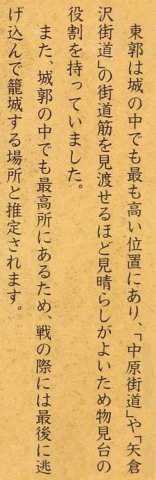 東郭は城の中でも最も高い位置にあり、「中原街道」や「矢倉
沢街道」の街道筋を見渡せるほど見晴らしがよいため物見台の
役割を持っていました。
また、城郭の中でも最高所にあるため、戦の際には最後に逃
げ込んで籠城する場所と推定されます。